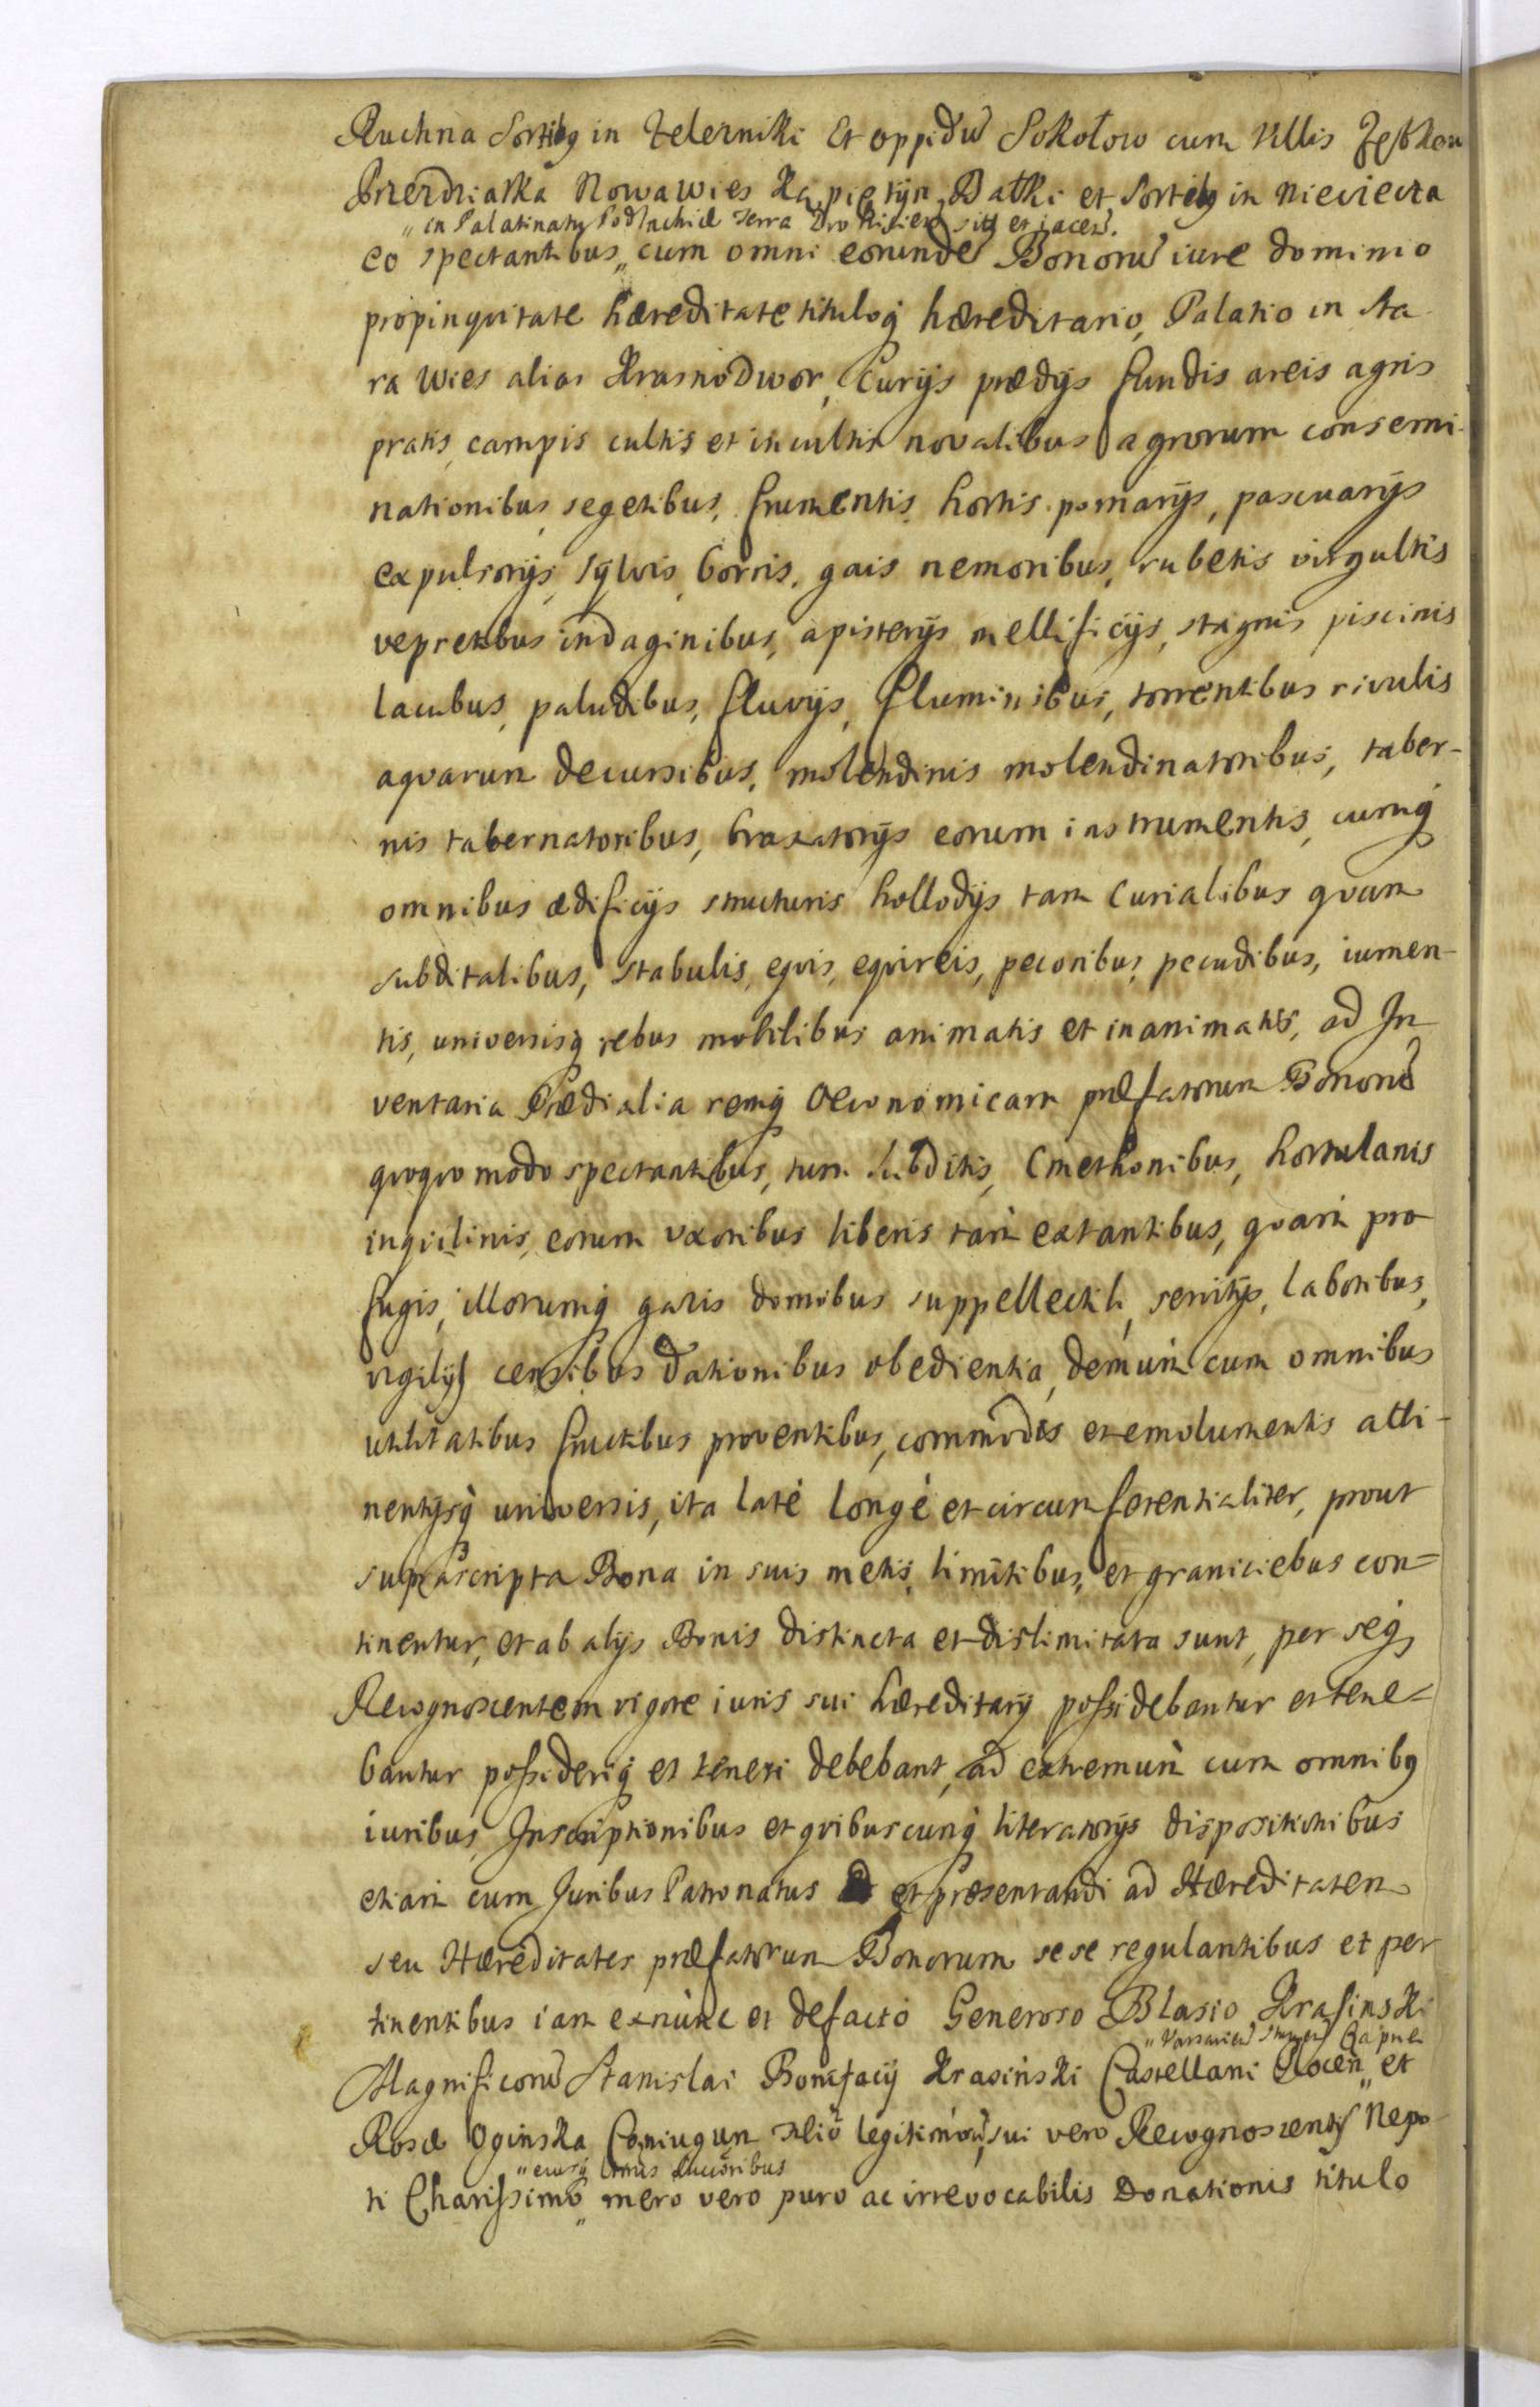 Ruchna Sortibq in Zelerniki Et oppidu Sokołow cum Villis
Przezdziatka Nowawies Kapietyn Batki et Sortibq in Nieciecza
„in Palatinatu Podlachiæ Terra Drohicien sitis et jacen.
eo spectantibus„ cum omni eorunde Bonoru iure dominio
propinquitate hæreditate tituloq hæreditario, Palatio in Sta
ra Wies alias Krasnodwor, Curijs prædijs fundis areis agris
pratis, campis cultis et incultis novalibus agrorum consemi-
nationibus, segetibus, frumentis, hortis, pomarijs, pascuarijs
expulsorijs, sylvis, borris, gais nemoribus, rubetis virgultis
vepretibus indaginibus, apisterijs mellificijs, stagnis piscinis
lacubus, paludibus, fluvijs, fluminibus, torrentibus rivulis
aqvarum decursibus, molendinis molendinatoribus, taber-
nis tabernatoribus, braxatorijs eorum instrumentis, cumq
omnibus ædificijs structuris hollodijs tam Curialibus qvam
subditalibus, stabulis, eqvis, eqvireis, pecoribus, pecudibus, iumen-
tis, universisq rebus mobilibus animatis et inanimatis, ad In
ventaria Prædialia remq Oeconomicam præfatorum Bonoru
qvoqvo modo spectantibus, tum Subditis, Cmethonibus, hortulanis
inqvilinis, eorum uxoribus liberis tam extantibus, qvam pro
fugis, illorumq gazis domibus suppellectili, servitijs, laboribus,
vigilijs censibus dationibus obedientia, demum cum omnibus
utilitatibus fructibus proventibus, commodis et emolumentis atti-
nentijsq universis, ita latè longè et circumferentialiter, prout
suprascripta Bona in suis metis, limitibus, et graniciebus con=
tinentur, et ab alijs Bonis distincta et dislimitata sunt, per seq
Recognoscentem vigore iuris sui hæreditarij possidebantur et tene=
bantur possideriq et teneri debebant, ad extremum cum omnibq
iuribus, Inscriptionibus et qvibuscunq literatorijs dispositionibus
etiam cum Juribus Patronatus et præsentandi ad Hæreditatem
seu Hæreditates præfatorum Bonorum sese regulantibus et per
tinentibus iam exnunc et defacto Generoso Blasio Krasinski
„Varsavien
Magnificoru Stanislai Bonifacij Krasinski Castellani Plocen„ et
Rosæ Oginska Coniugum filio legitimo, sui vero Recognoscentis Nepo
„eiusq succoribus
ti Charissimo„ mero vero puro ac irrevocabilis Donationis titulo